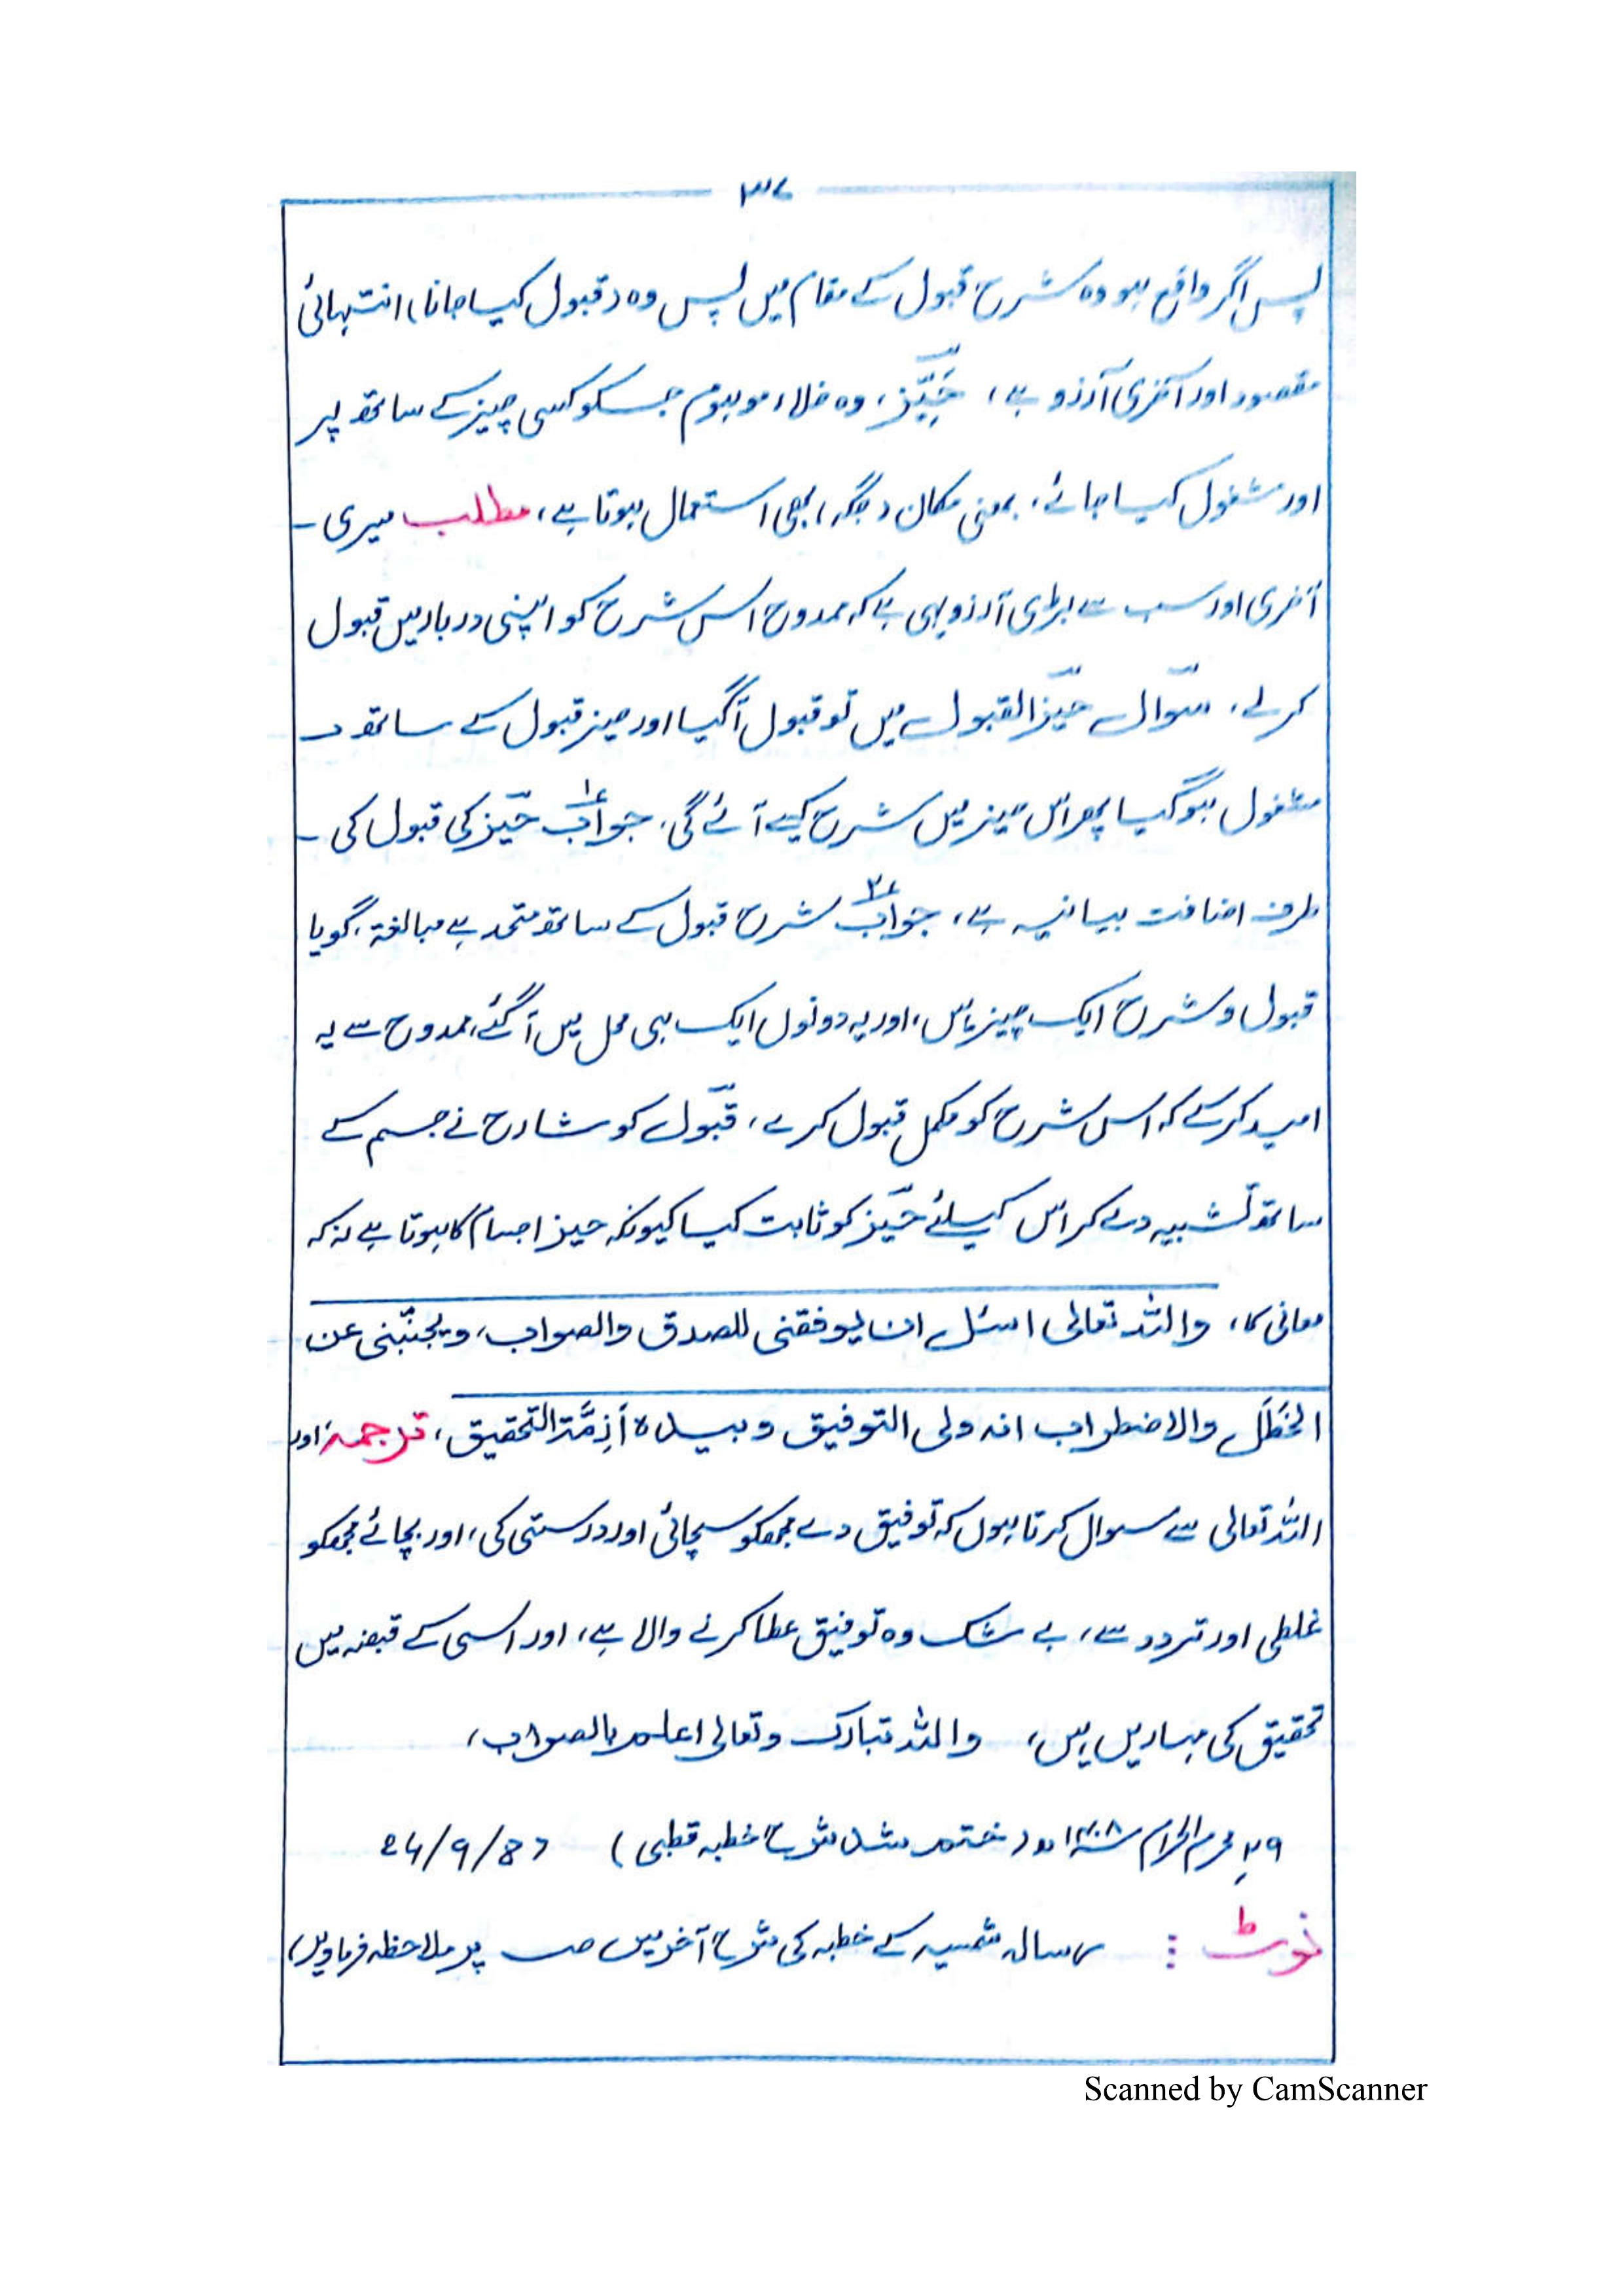 ۳۷
پس اگر واقع ہو وہ شرح قبول کے مقام میں پس وہ (قبول کیا جانا) انتہائی
مقصود اور آخری آرزو ہے، حَیِّز، وہ خلاء موہوم جسکو کسی چیز کے ساتھ پر
اور مشغول کیا جائے، بمعنی مکان (جگہ) بھی استعمال ہوتا ہے، مطلب میری۔
آخری اور سب سے بڑی آرزو یہی ہے کہ ممدوح اس شرح کو اپنی دربار میں قبول
کرلے، سوال حیّز القبول میں تو قبول آگیا اور حیز قبول کے ساتھ
مشغول ہوگیا پھر اس حیز میں شرح کیسے آئے گی، جواب ۱ حیّز کی قبول کی۔
طرف اضافت بیانیہ ہے، جواب ۲ شرح قبول کے ساتھ متحد ہے مبالغۃ، گویا
قبول و شرح ایک چیز ہیں، اور یہ دونوں ایک ہی محل میں آگئے، ممدوح سے یہ
امید کرکے کہ اس شرح کو مکمل قبول کرے، قبول کو شارح نے جسم کے
ساتھ تشبیہ دے کر اس کیلئے حیّز کو ثابت کیا کیونکہ حیز اجسام کا ہوتا ہے نہ کہ
معانی کا، واللہ تعالی اسئل ان یوفقنی للصدق والصواب، ویجنّبنی عن
الخَطَلِ والاضطراب انہ ولی التوفیق وبیدہ أَزِمَّۃ التحقیق، ترجمہ: اور
اللہ تعالی سے سوال کرتا ہوں کہ توفیق دے مجھکو سچائی اور درستی کی، اور بچائے مجھکو
غلطی اور تردد سے، بے شک وہ توفیق عطا کرنے والا ہے، اور اسی کے قبضہ میں
تحقیق کی مہاریں ہیں، واللہ تبارک وتعالی اعلم بالصواب،
۲۹ محرم الحرام ۱۴۰۸ھ (ختم شد شرح خطبہ قطبی) 24/9/87
نوٹ: رسالہ شمسیہ کے خطبہ کی شرح آخر میں صـ پر ملاحظہ فرماویں)
Scanned by CamScanner